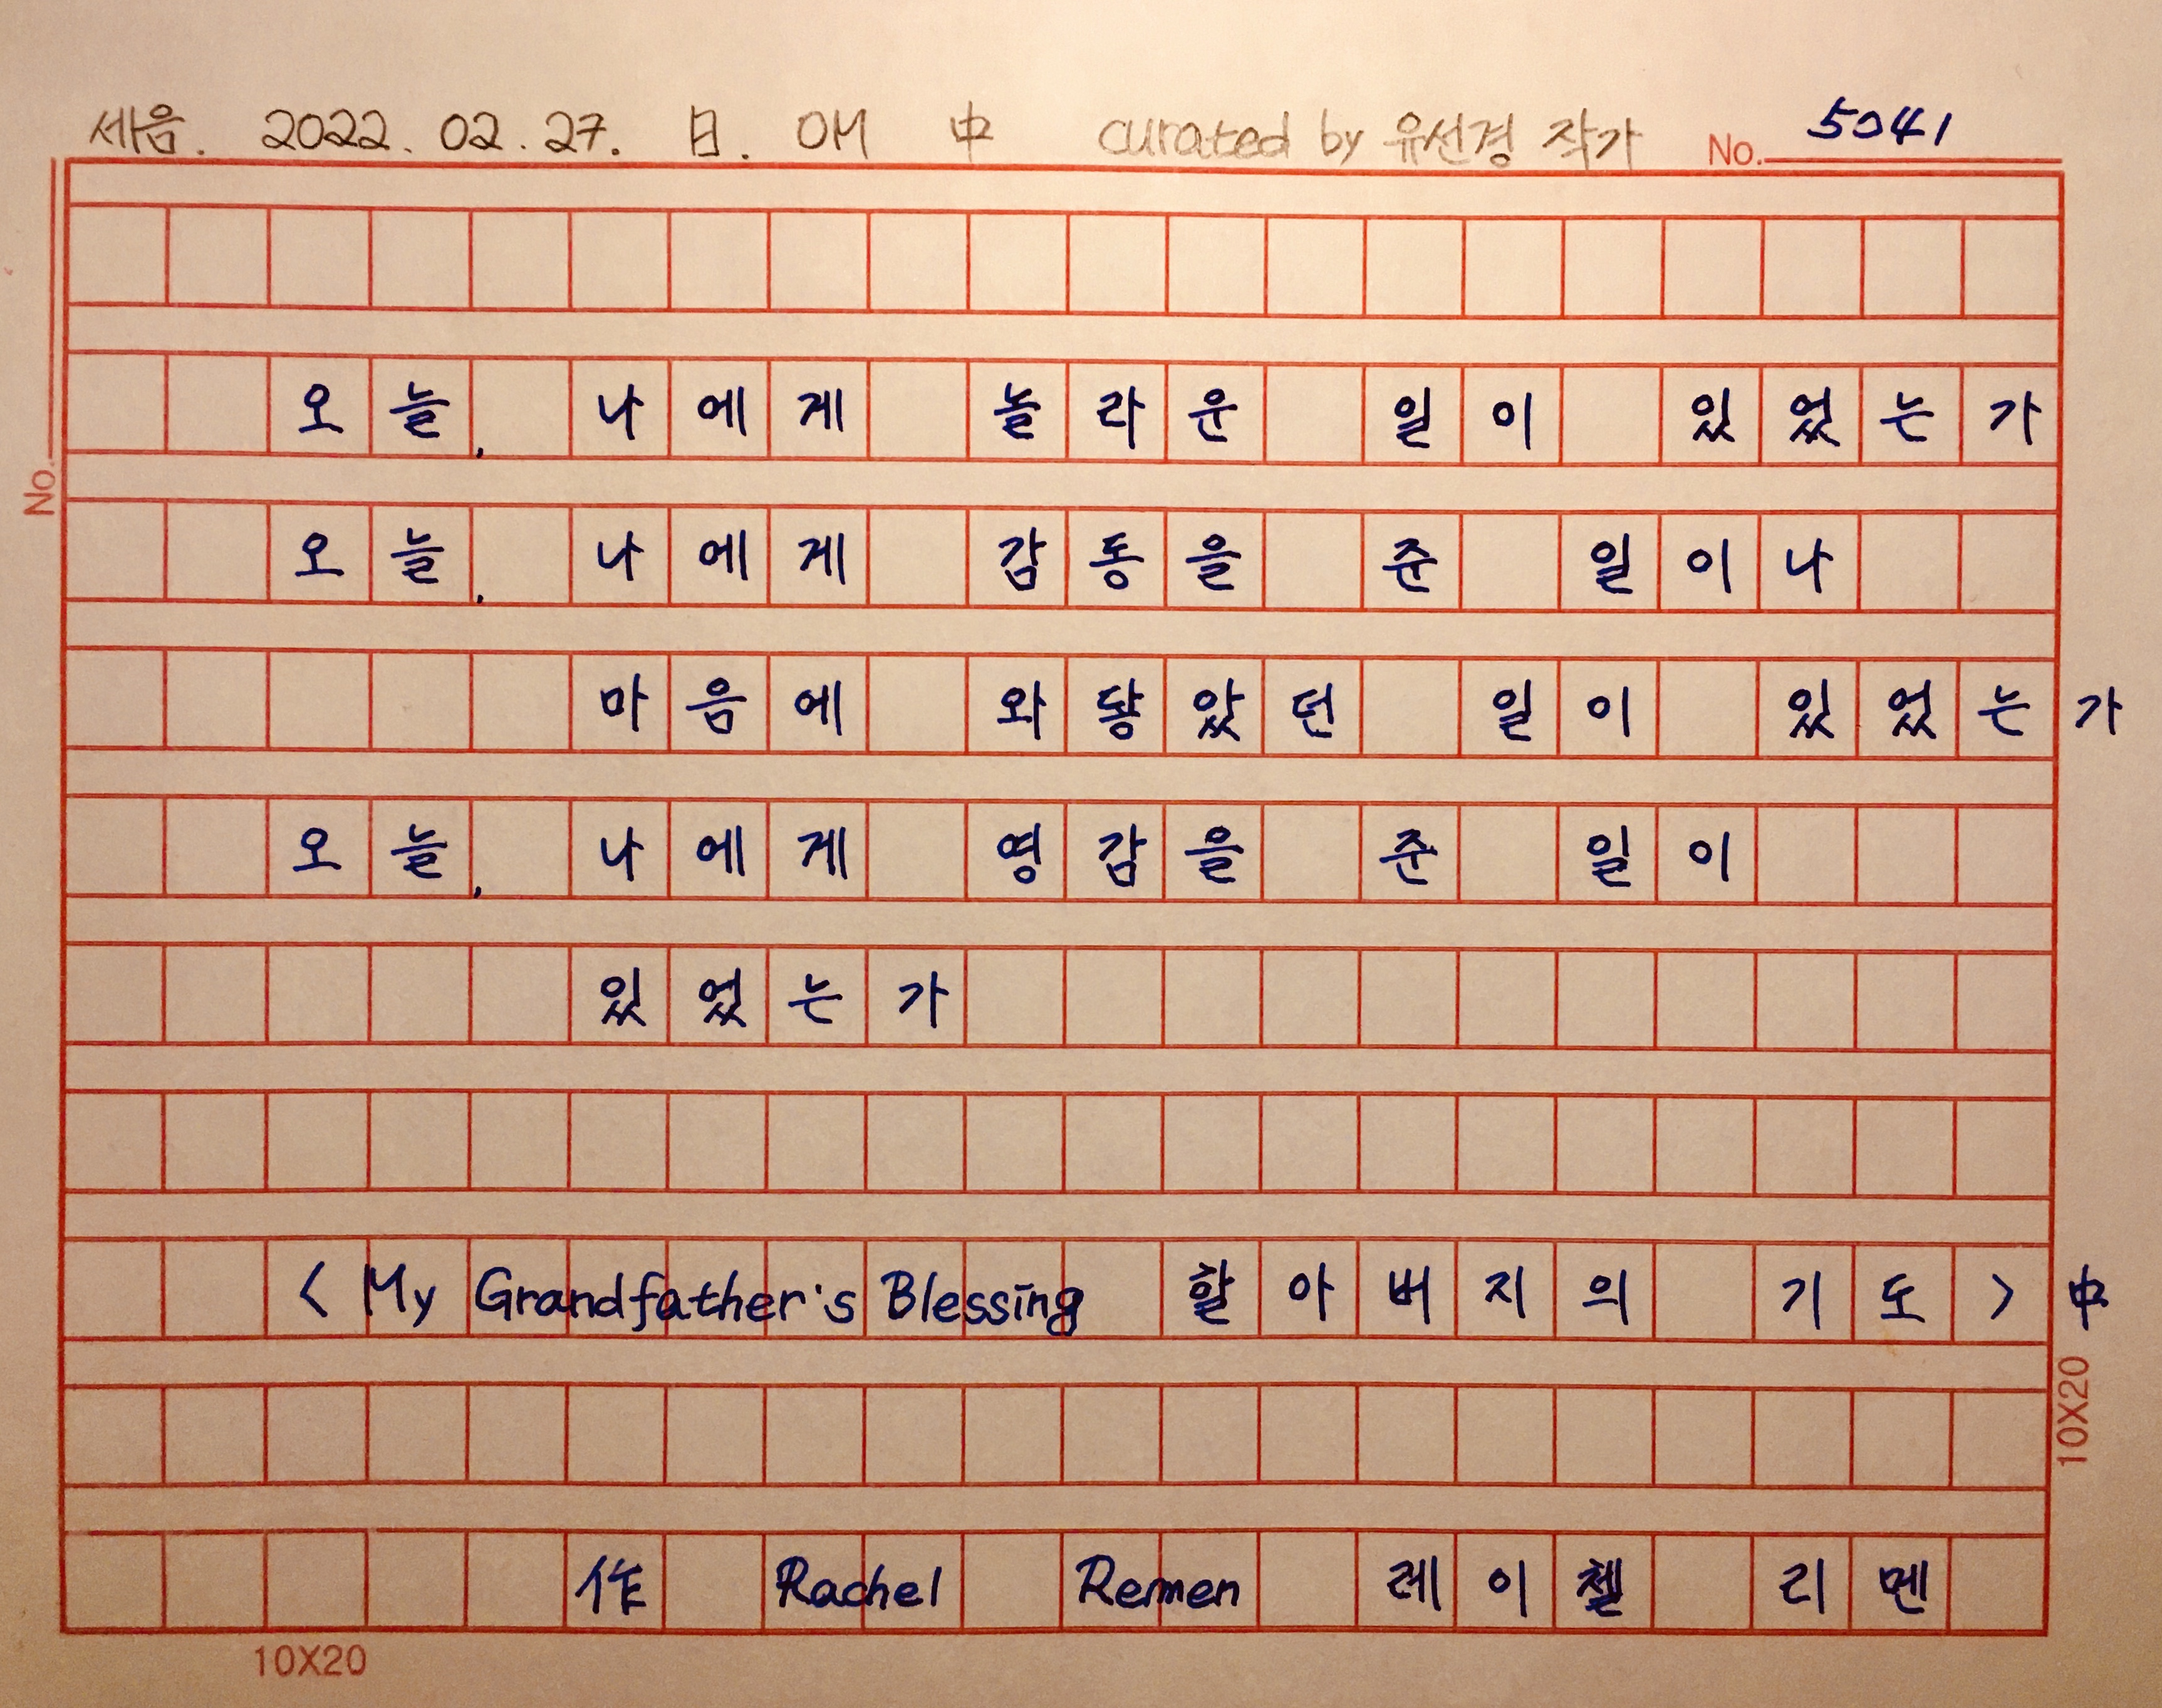 세음. 2022. 02. 27. 日. OM 中 curated by 유선경 작가 No. 5041
오늘, 나에게 놀라운 일이 있었는가
No.
오늘, 나에게 감동을 준 일이나
마음에 와닿았던 일이 있었는가
오늘, 나에게 영감을 준 일이
있었는가
< My Grandfather's Blessing 할아버지의 기도 > 中
10X20
作 Rachel Remen 레이첼 리멘
10X20